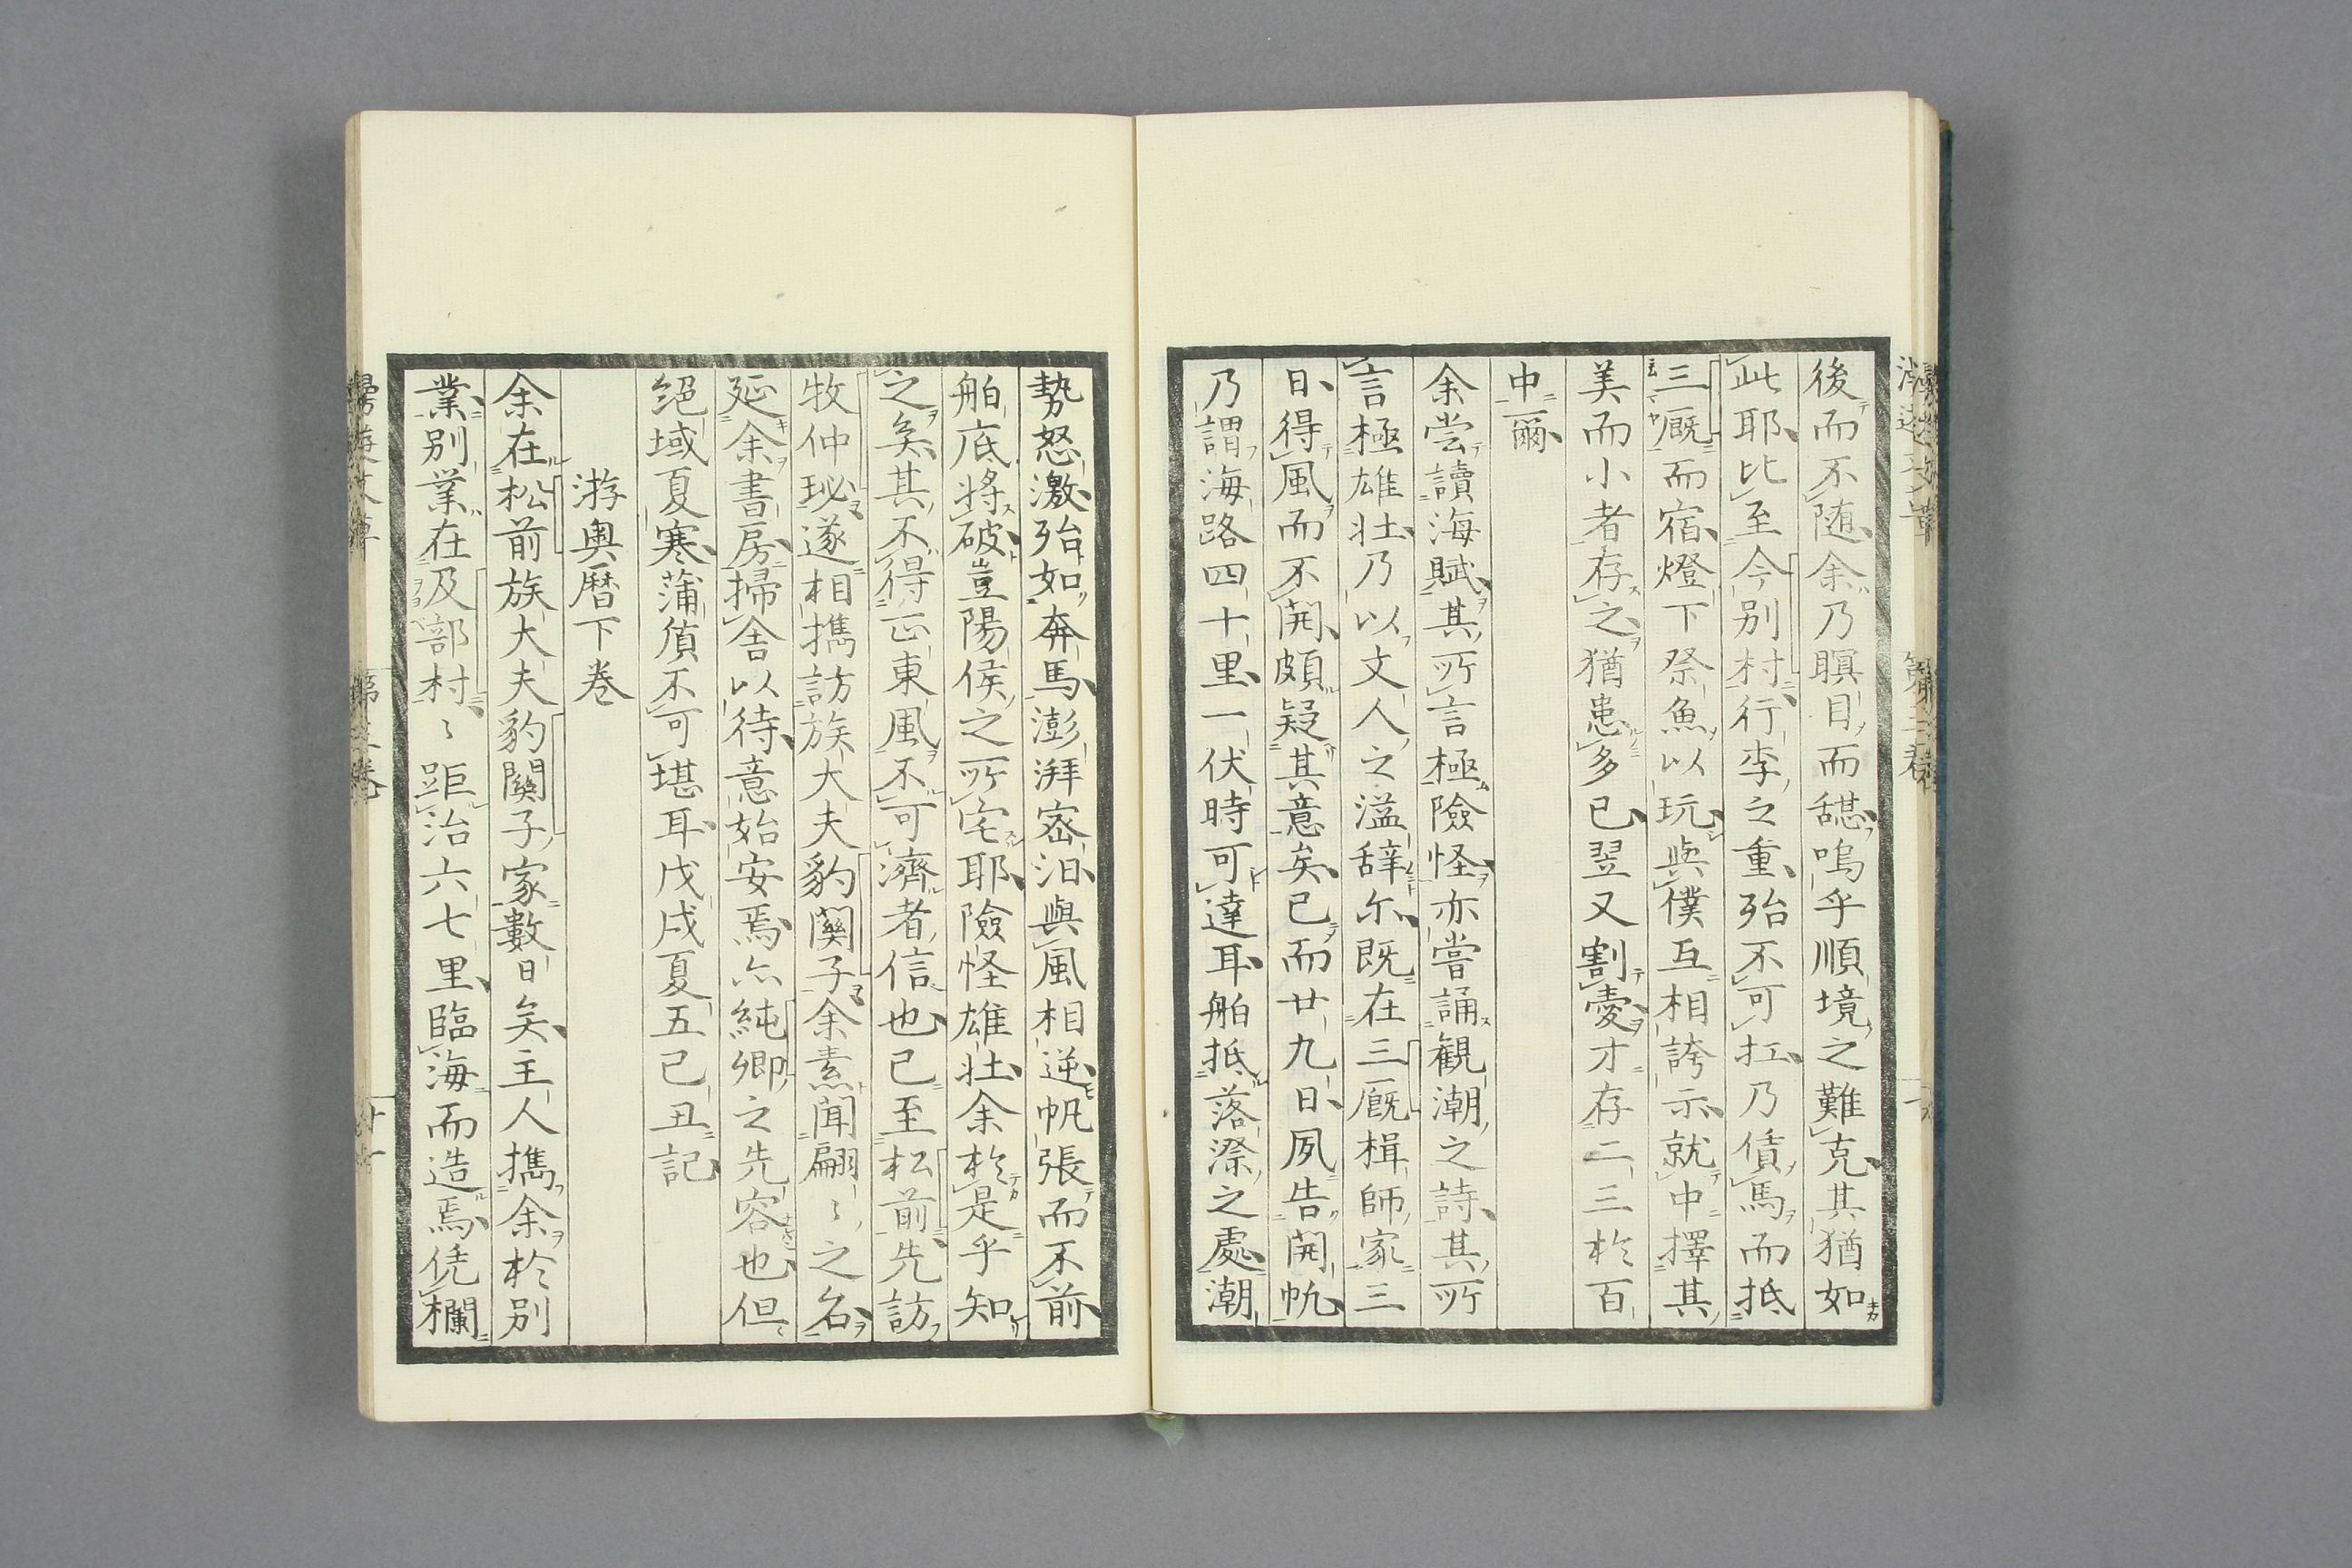 後而不随余乃瞑目而甜嗚乎順境之難克其猶如
此耶比至今别村行李之重殆不可扛乃債馬而抵
三厩而宿燈下祭魚以玩與僕互相誇示就中擇其
美而小者存之猶患多已翌又割愛才存二三於百
中爾
余嘗讀海賦其所言極險怪亦嘗誦観潮之詩其所
言極雄壮乃以文人之溢辞尓既在三厩楫師家三
日得風而不開頗疑其意矣已而廿九日夙告開帆
乃謂海路四十里一伏時可達耳舶抵落漈之處潮
勢怒激殆如奔馬澎湃宻汨與風相逆帆張而不前
舶底将破豈陽侯之所宅耶險怪雄壮余於是乎知
之矣其不得正東風不可濟者信也已至松前先訪
牧仲珌遂相擕訪族大夫豹關子余素聞翩〻之名
延余書房掃舎以待意始安焉亦純卿之先容也但
絶域夏寒蒲偵不可堪耳戊戌夏五己丑記
游奥暦下巻
余在松前族大夫豹關子家數日矣主人擕余於別
業別業在及部村〻距治六七里臨海而造焉凭欄
第三巻